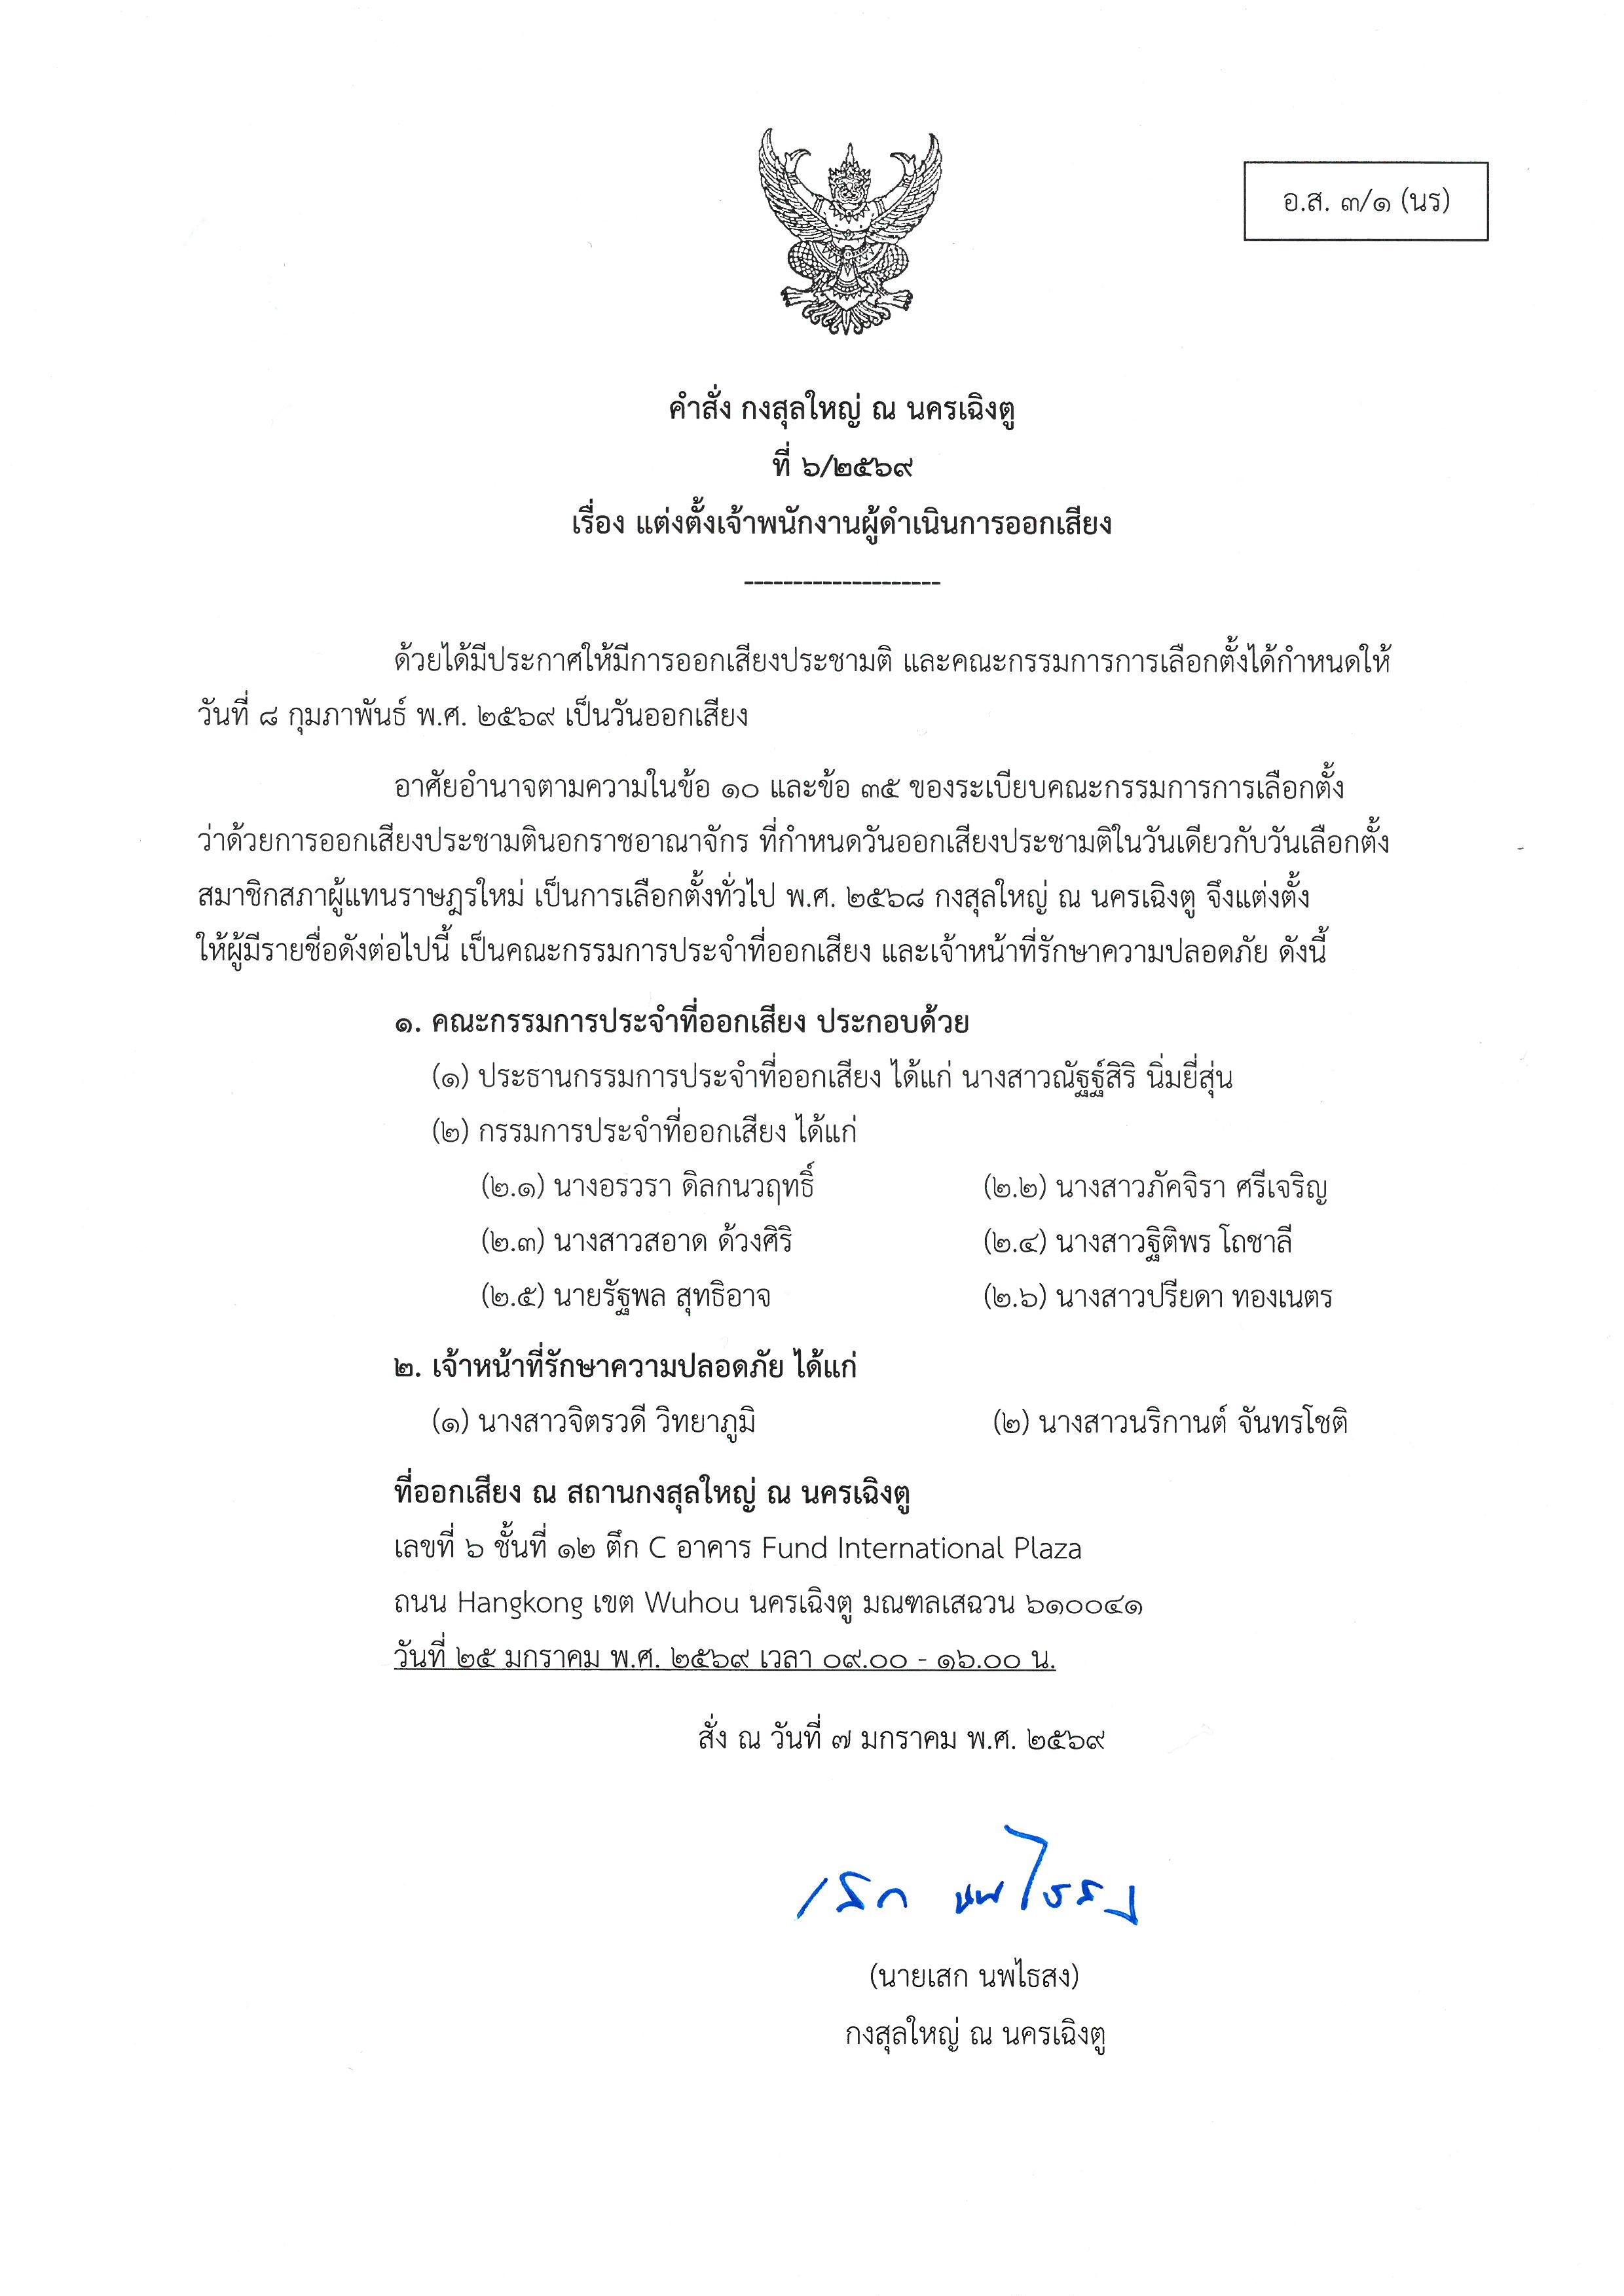 อ.ส. ๓/๑ (นร)
คำสั่ง กงสุลใหญ่ ณ นครเฉิงตู
ที่ ๖/๒๕๖๙
เรื่อง แต่งตั้งเจ้าพนักงานผู้ดำเนินการออกเสียง
--------------------
ด้วยได้มีประกาศให้มีการออกเสียงประชามติ และคณะกรรมการการเลือกตั้งได้กำหนดให้
วันที่ ๘ กุมภาพันธ์ พ.ศ. ๒๕๖๙ เป็นวันออกเสียง
อาศัยอำนาจตามความในข้อ ๑๐ และข้อ ๓๕ ของระเบียบคณะกรรมการการเลือกตั้ง
ว่าด้วยการออกเสียงประชามตินอกราชอาณาจักร ที่กำหนดวันออกเสียงประชามติในวันเดียวกับวันเลือกตั้ง
สมาชิกสภาผู้แทนราษฎรใหม่ เป็นการเลือกตั้งทั่วไป พ.ศ. ๒๕๖๘ กงสุลใหญ่ ณ นครเฉิงตู จึงแต่งตั้ง
ให้ผู้มีรายชื่อดังต่อไปนี้ เป็นคณะกรรมการประจำที่ออกเสียง และเจ้าหน้าที่รักษาความปลอดภัย ดังนี้
๑. คณะกรรมการประจำที่ออกเสียง ประกอบด้วย
(๑) ประธานกรรมการประจำที่ออกเสียง ได้แก่ นางสาวณัฐฐ์สิริ นิ่มยี่สุ่น
(๒) กรรมการประจำที่ออกเสียง ได้แก่
(๒.๑) นางอรวรา ดิลกนวฤทธิ์ (๒.๒) นางสาวภัคจิรา ศรีเจริญ
(๒.๓) นางสาวสอาด ด้วงศิริ (๒.๔) นางสาวฐิติพร โถชาลี
(๒.๕) นายรัฐพล สุทธิอาจ (๒.๖) นางสาวปรียดา ทองเนตร
๒. เจ้าหน้าที่รักษาความปลอดภัย ได้แก่
(๑) นางสาวจิตรวดี วิทยาภูมิ (๒) นางสาวนริกานต์ จันทรโชติ
ที่ออกเสียง ณ สถานกงสุลใหญ่ ณ นครเฉิงตู
เลขที่ ๖ ชั้นที่ ๑๒ ตึก C อาคาร Fund International Plaza
ถนน Hangkong เขต Wuhou นครเฉิงตู มณฑลเสฉวน ๖๑๐๐๔๑
วันที่ ๒๕ มกราคม พ.ศ. ๒๕๖๙ เวลา ๐๙.๐๐ - ๑๖.๐๐ น.
สั่ง ณ วันที่ ๗ มกราคม พ.ศ. ๒๕๖๙
เสก นพไธสง
(นายเสก นพไธสง)
กงสุลใหญ่ ณ นครเฉิงตู